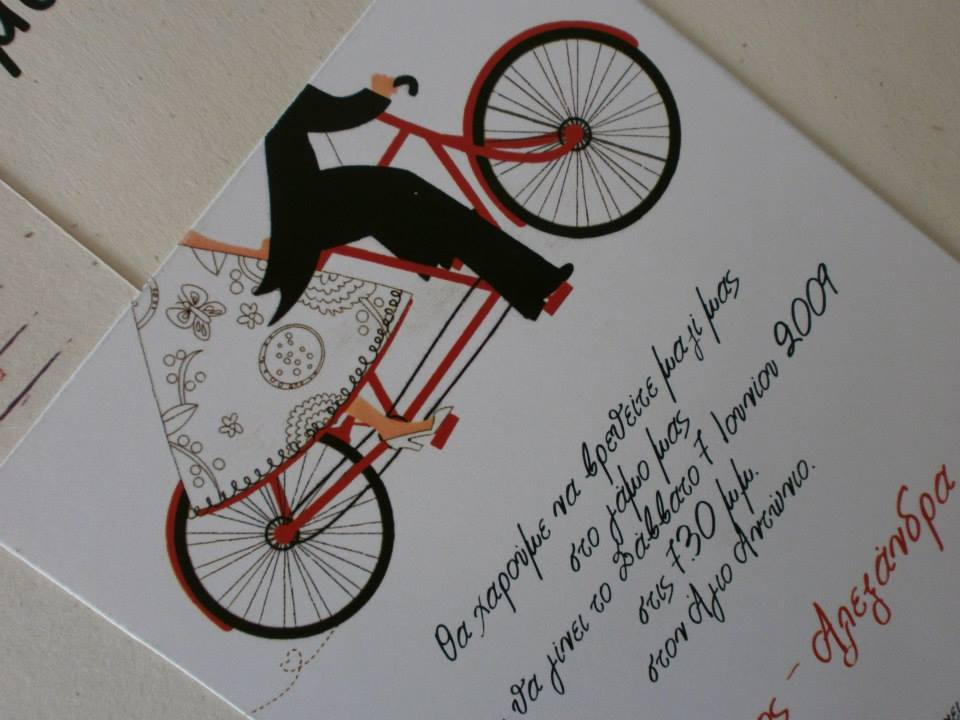 Θα χαρούμε να βρεθείτε μαζί μας
στο γάμο μας
θα γίνει το Σάββατο 7 Ιουνίου 2009
στις 7.30 μ.μ.
στον Άγιο Αντώνιο.
- Αλεξάνδρα